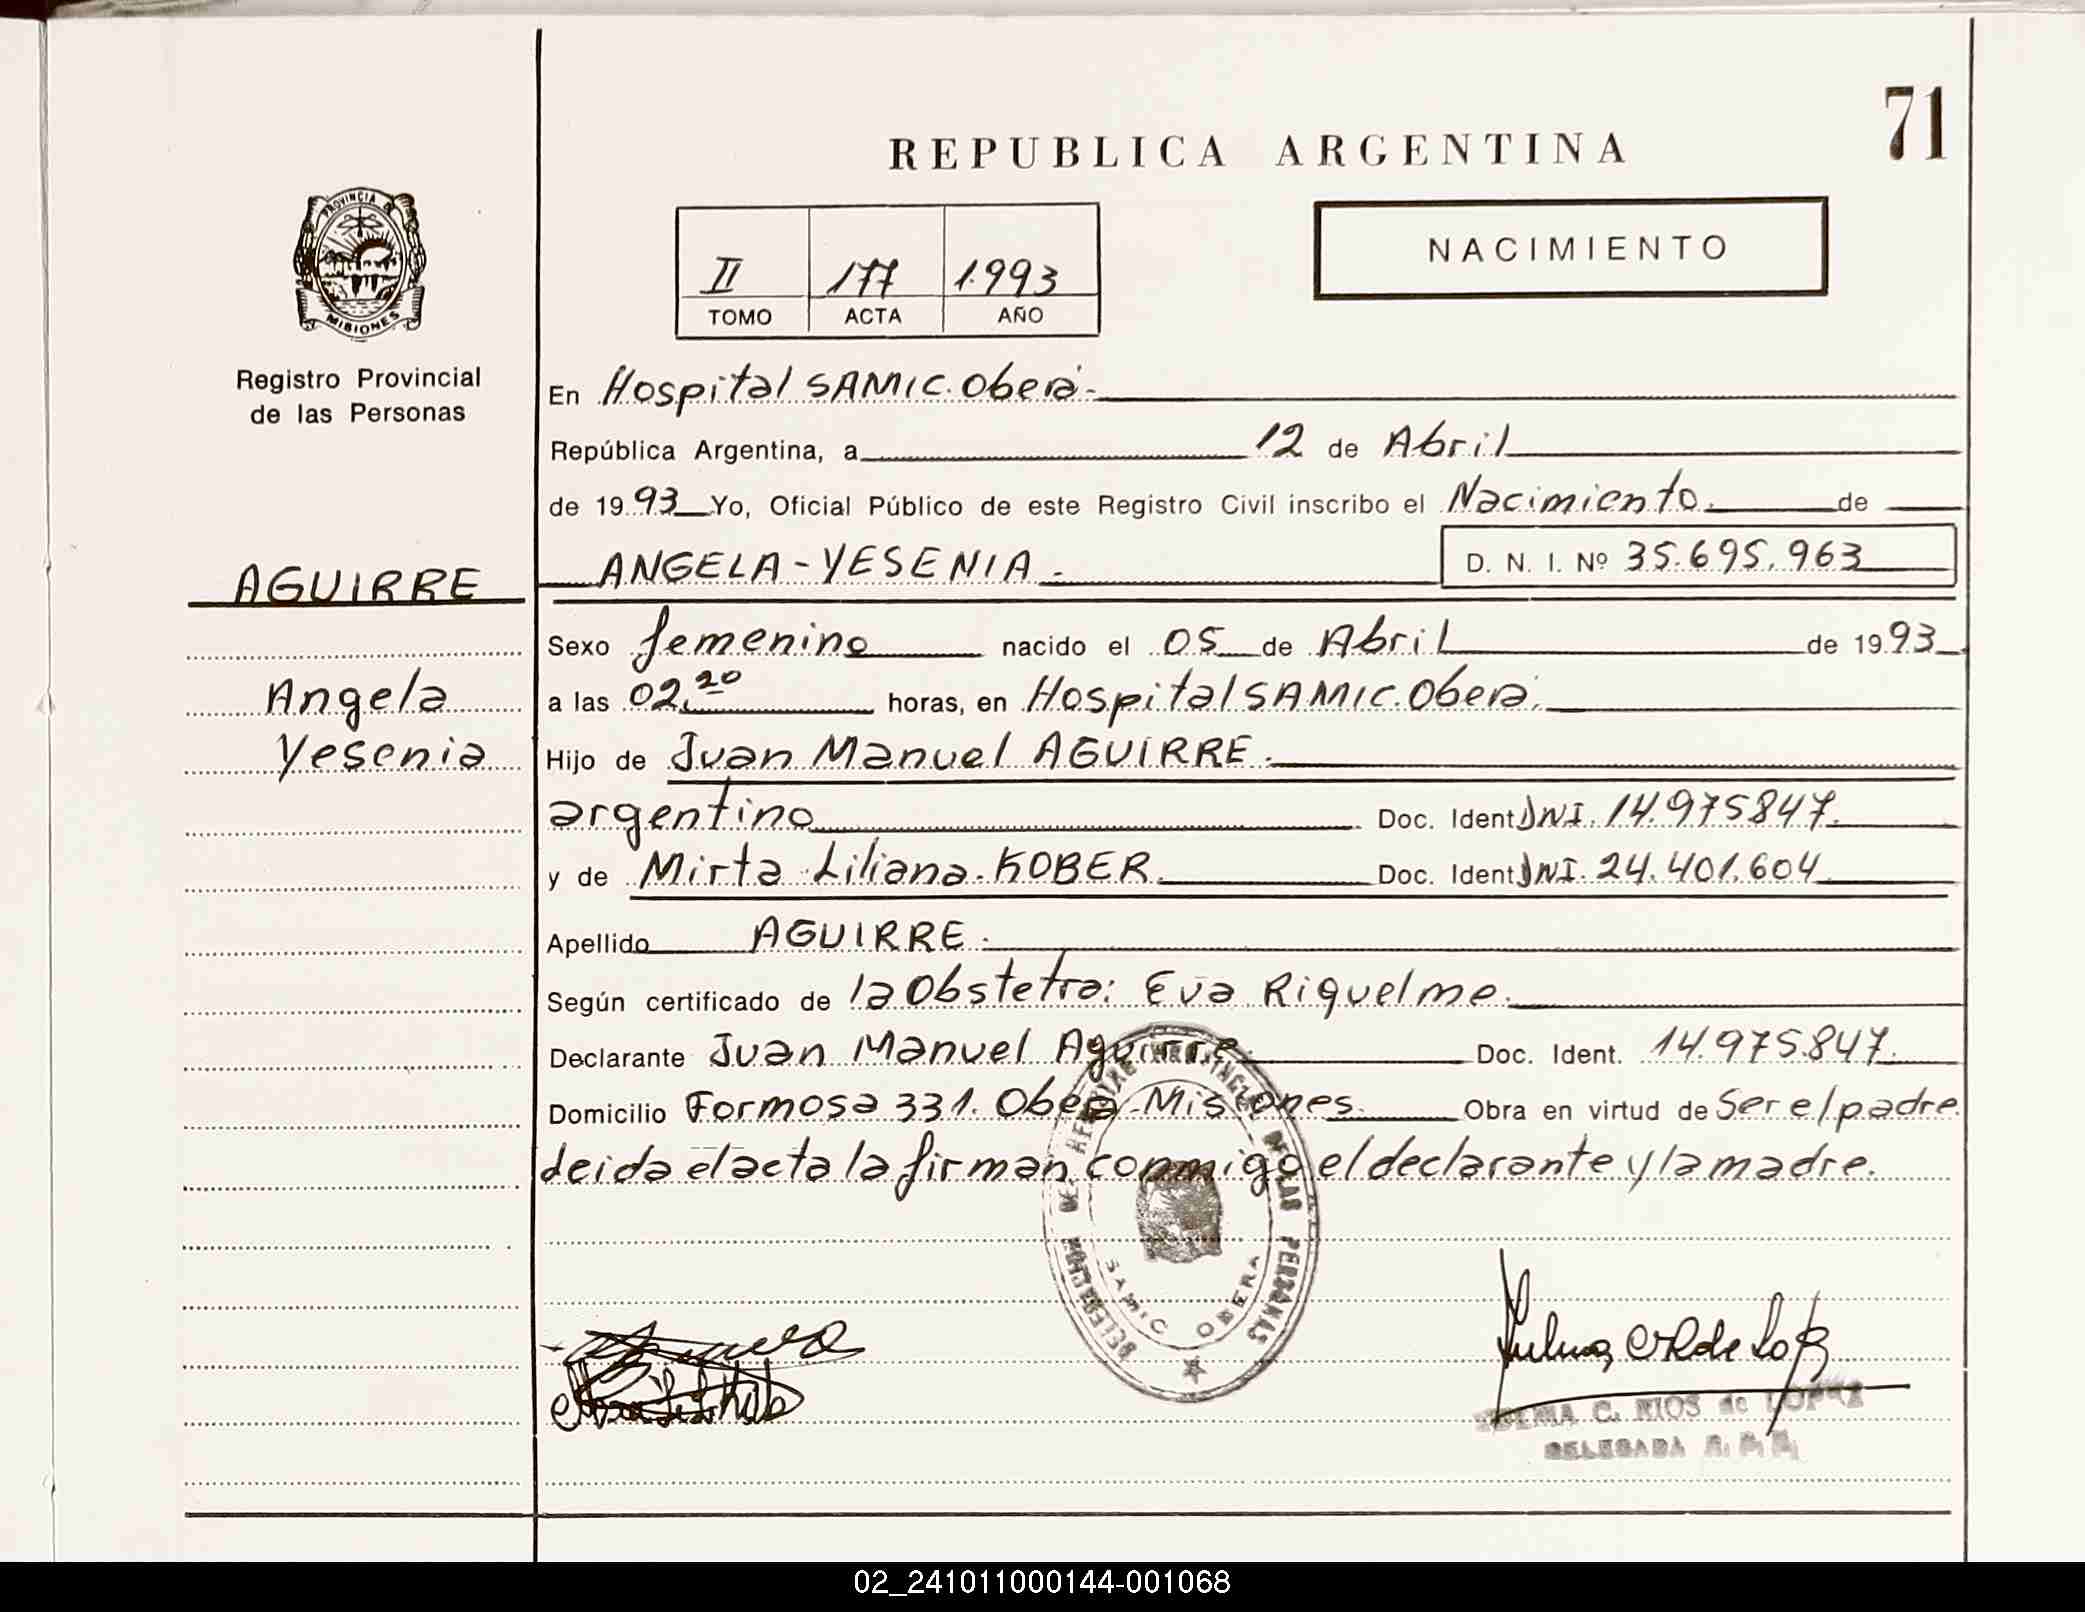 71
REPUBLICA ARGENTINA
PROVINCIA DE
MISIONES
II 177 1.993
TOMO ACTA AÑO
NACIMIENTO
Registro Provincial
de las Personas
En Hospital SAMIC. Oberá.-
República Argentina, a 12 de Abril
de 1993 Yo, Oficial Público de este Registro Civil inscribo el Nacimiento. de
AGUIRRE
ANGELA - YESENIA.- D. N. I. Nº 35.695.963
Sexo femenino nacido el 05 de Abril de 1993
Angela
a las 02.20 horas, en Hospital SAMIC. Oberá.
Yesenia
Hijo de Juan Manuel AGUIRRE.-
argentino Doc. Ident DNI. 14.975847.
y de Mirta Liliana KOBER. Doc. Ident DNI. 24.401.604
Apellido AGUIRRE.
Según certificado de la Obstetra: Eva Riquelme.
Declarante Juan Manuel Aguirre Doc. Ident. 14.975.847.
Domicilio Formosa 331. Oberá-Misiones. Obra en virtud de Ser el padre
Leida el acta la firman conmigo el declarante y la madre.
DELEGACION DEL REGISTRO PROVINCIAL DE LAS PERSONAS
SAMIC OBERA
C. RIOS de LOPEZ
DELEGADA R. P. P.
02_241011000144-001068